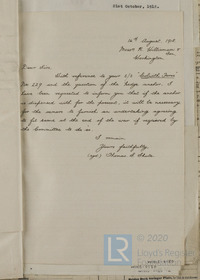 21st October, 1918.
14th August 1918
Messrs R. Williamson & Son
Workington
Dear Sirs
With reference to your s/s
No 229 and the question of the kedge anchor. I
have been requested to inform you that if the anchor
is dispensed with for the present, it will be necessary
for the owners to furnish an undertaking agreeing
to fit same at the end of the war if required by
the Committee to do so.
I remain
Yours faithfully
(sgd) Thomas
© 2020
Lloyd's Register